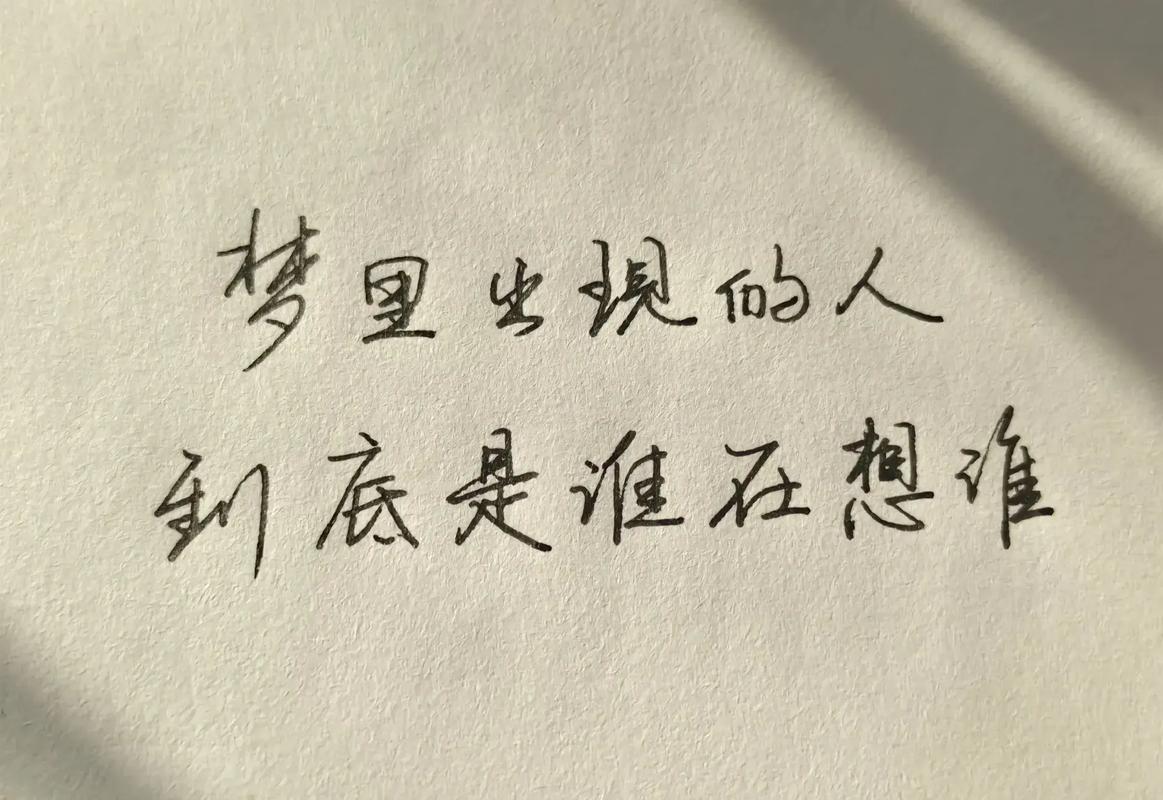 梦里出现的人
到底是谁在想谁